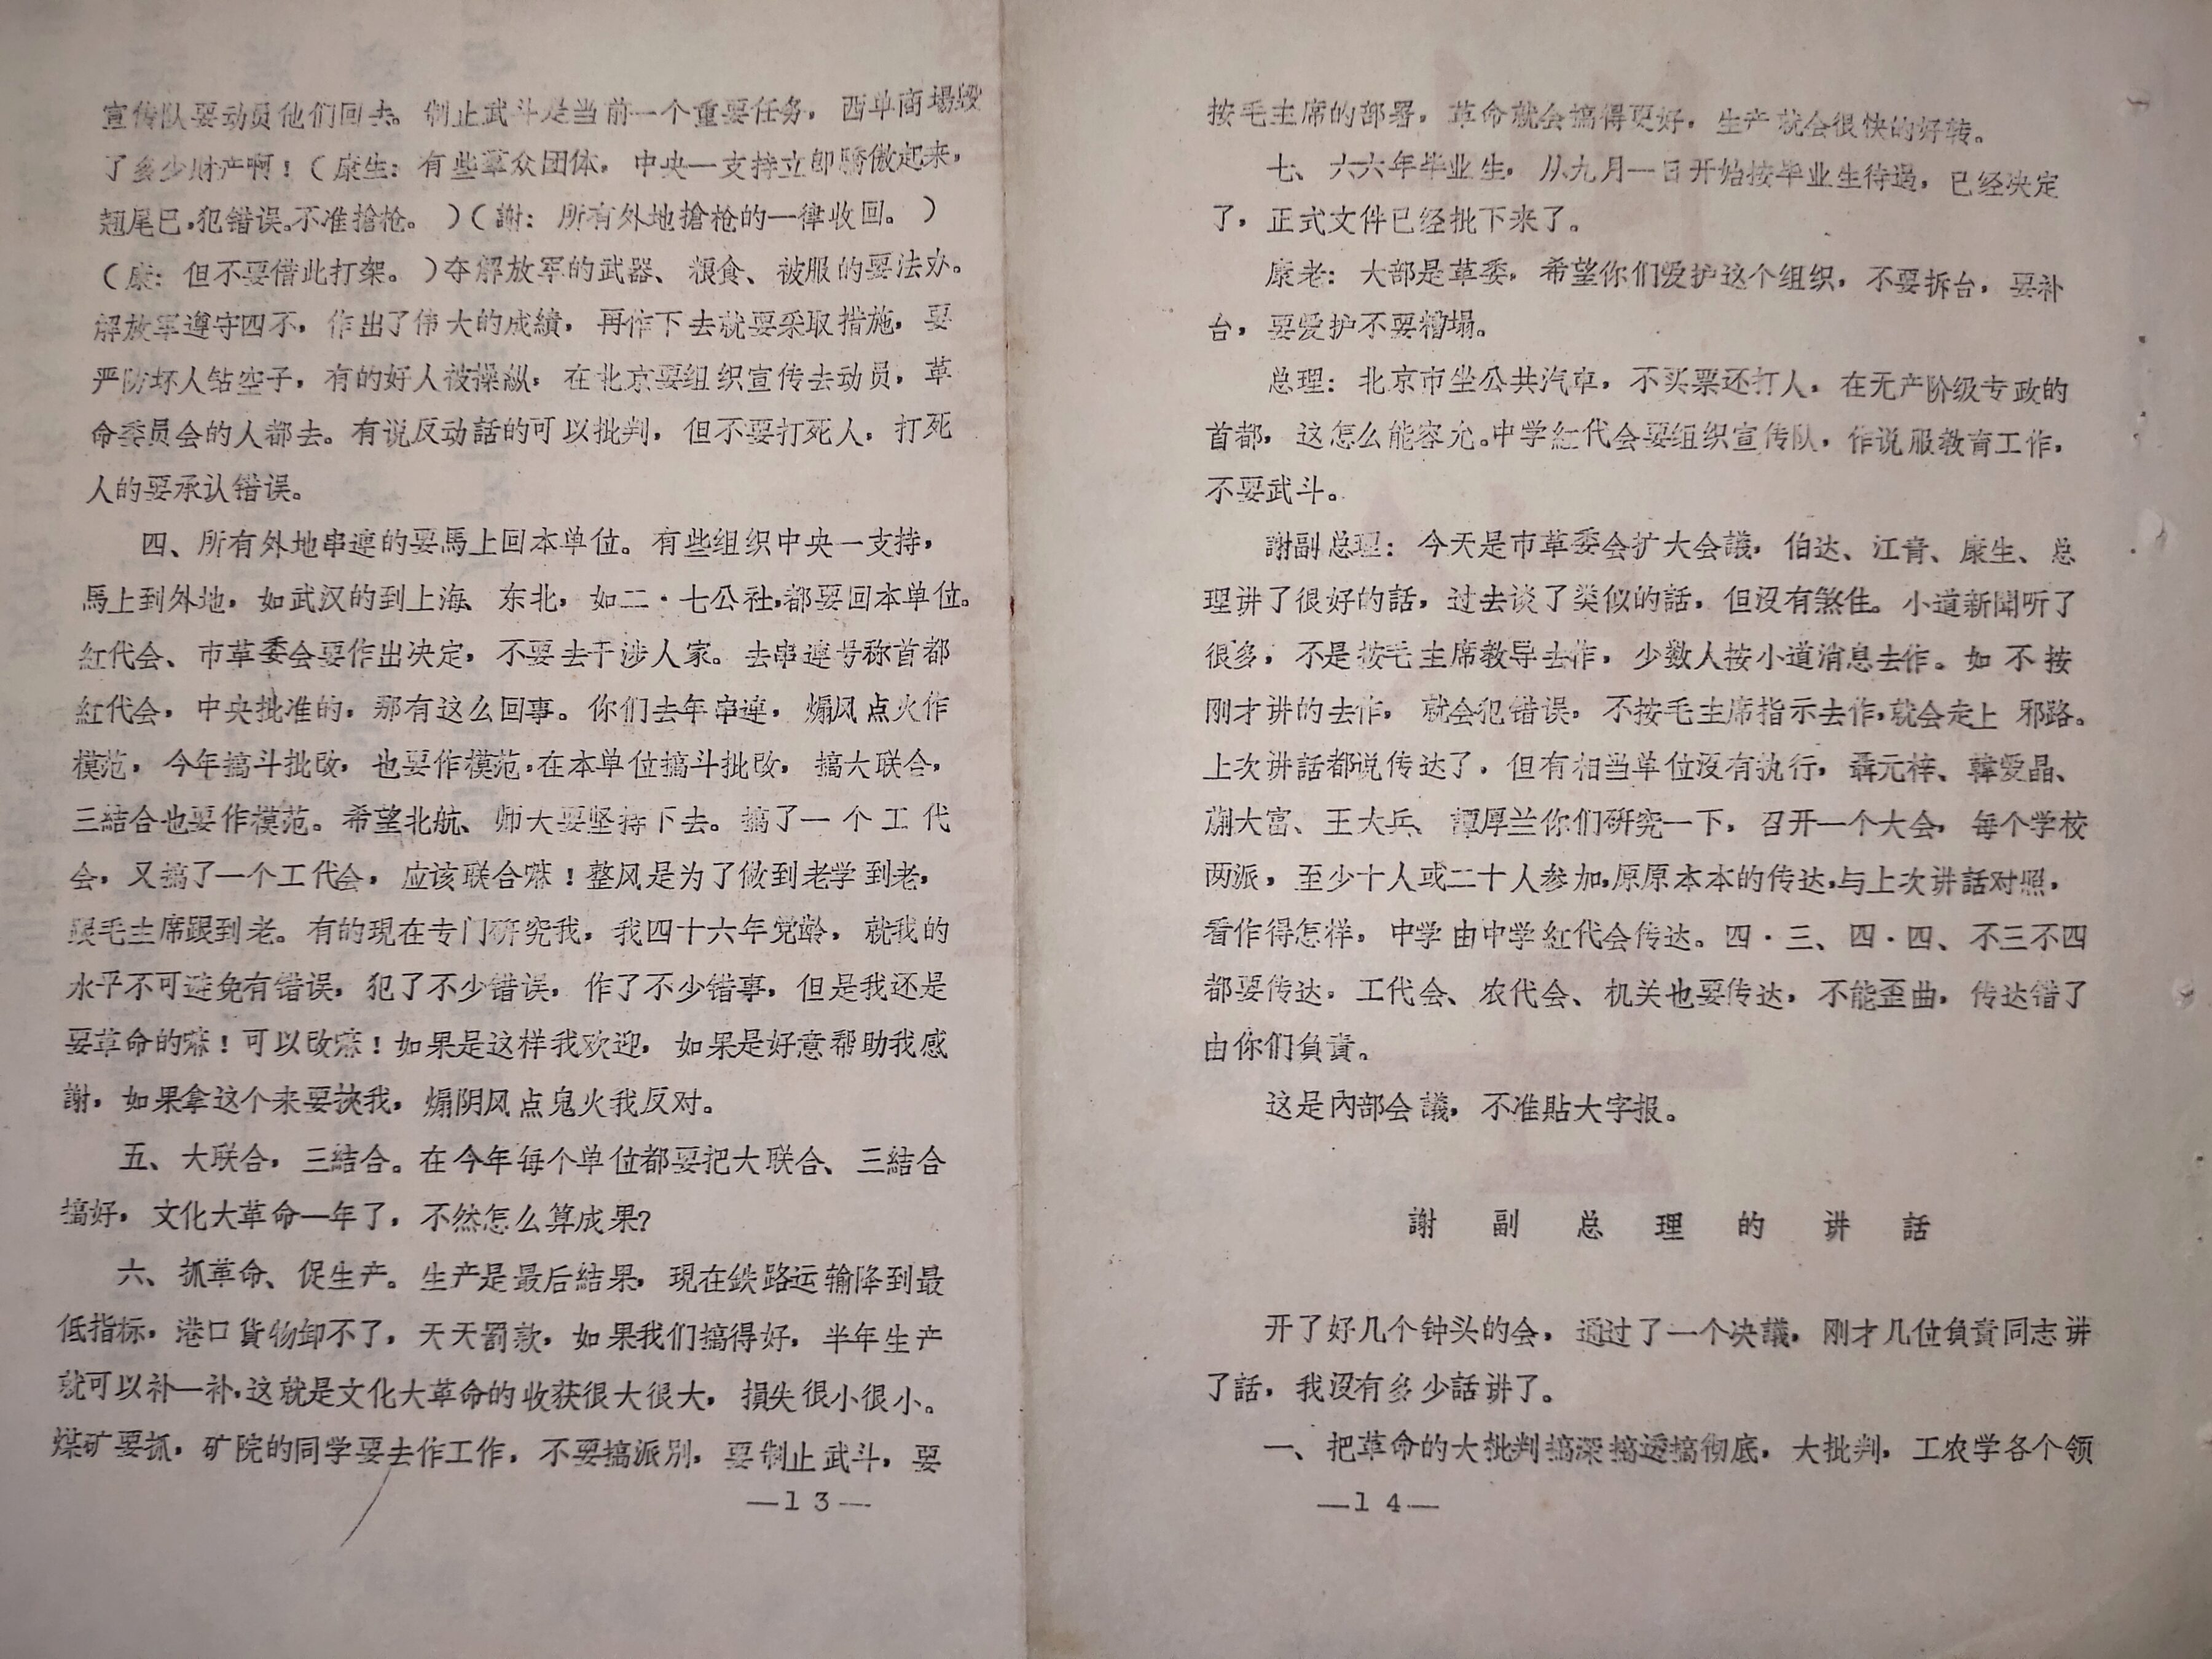 宣传队要动员他们回去。制止武斗是当前一个重要任务，西单商場毁
了多少财产啊！（康生：有些羣众团体，中央一支持立即驕傲起来，
翘尾巴，犯错误。不准搶枪。）（謝：所有外地搶枪的一律收回。）
（康：但不要借此打架。）夺解放军的武器、粮食、被服的要法办。
解放军遵守四不，作出了伟大的成績，再作下去就要采取措施，要
严防坏人钻空子，有的好人被操纵，在北京要组织宣传去动员，革
命委员会的人都去。有说反动話的可以批判，但不要打死人，打死
人的要承认错误。
四、所有外地串連的要馬上回本单位。有些组织中央一支持，
馬上到外地，如武汉的到上海、东北，如二·七公社，都要回本单位。
紅代会、市革委会要作出决定，不要去干涉人家。去串連号称首都
紅代会，中央批准的，那有这么回事。你们去年串連，煽风点火作
模范，今年搞斗批改，也要作模范，在本单位搞斗批改，搞大联合，
三結合也要作模范。希望北航、师大要坚持下去。搞了一个工代
会，又搞了一个工代会，应该联合嘛！整风是为了做到老学到老，
跟毛主席跟到老。有的現在专门研究我，我四十六年党龄，就我的
水平不可避免有错误，犯了不少错误，作了不少错事，但是我还是
要革命的嘛！可以改嘛！如果是这样我欢迎，如果是好意帮助我感
謝，如果拿这个来要挾我，煽阴风点鬼火我反对。
五、大联合，三結合。在今年每个单位都要把大联合、三結合
搞好，文化大革命一年了，不然怎么算成果？
六、抓革命、促生产。生产是最后結果，現在鉄路运输降到最
低指标，港口貨物卸不了，天天罰款，如果我们搞得好，半年生产
就可以补一补，这就是文化大革命的收获很大很大，損失很小很小。
煤矿要抓，矿院的同学要去作工作，不要搞派別，要制止武斗，要
—13—
按毛主席的部署，革命就会搞得更好，生产就会很快的好转。
七、六六年毕业生，从九月一日开始按毕业生待遇，已经决定
了，正式文件已经批下来了。
康老：大部是革委，希望你们爱护这个组织，不要拆台，要补
台，要爱护不要糟塌。
总理：北京市坐公共汽車，不买票还打人，在无产阶级专政的
首都，这怎么能容允。中学紅代会要组织宣传队，作说服教育工作，
不要武斗。
謝副总理：今天是市革委会扩大会議，伯达、江青、康生、总
理讲了很好的話，过去谈了类似的話，但沒有煞住。小道新聞听了
很多，不是按毛主席教导去作，少数人按小道消息去作。如不按
刚才讲的去作，就会犯错误，不按毛主席指示去作，就会走上邪路。
上次讲話都说传达了，但有相当单位沒有执行，聶元梓、韓爱晶、
蒯大富、王大兵、譚厚兰你们研究一下，召开一个大会，每个学校
两派，至少十人或二十人参加，原原本本的传达，与上次讲話对照，
看作得怎样，中学由中学紅代会传达。四·三、四·四、不三不四
都要传达，工代会、农代会、机关也要传达，不能歪曲，传达错了
由你们負責。
这是內部会議，不准貼大字报。
謝副总理的讲話
开了好几个钟头的会，通过了一个决議，刚才几位負責同志讲
了話，我沒有多少話讲了。
一、把革命的大批判搞深搞透搞彻底，大批判，工农学各个领
—14—